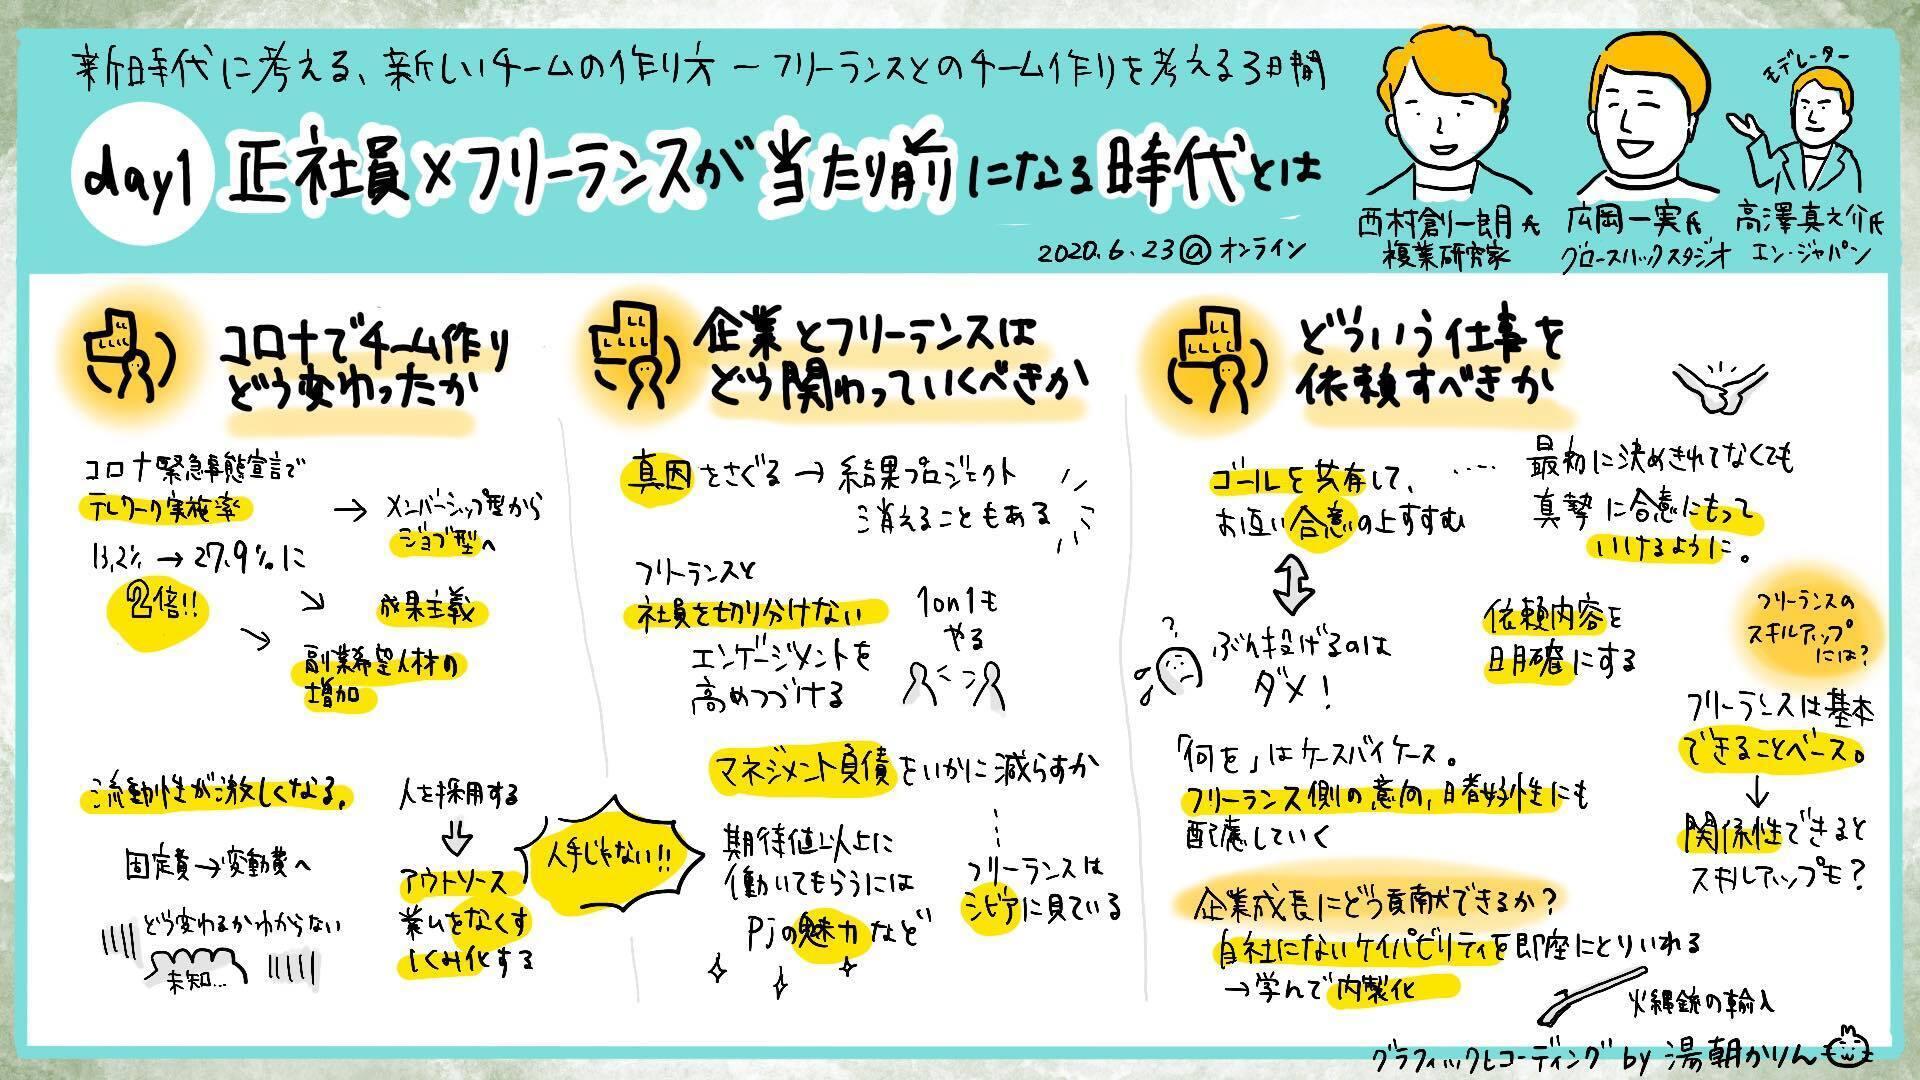 新時代に考える、新しいチームの作り方 ― フリーランスとのチーム作りを考える3日間
day1 正社員×フリーランスが当たり前になる時代とは
2020.6.23@オンライン
西村創一朗氏
複業研究家
広岡一実氏
グロースハックスタジオ
モデレーター
高澤真之介氏
エン・ジャパン
コロナでチーム作り
どう変わったか
コロナ緊急事態宣言で
テレワーク実施率
13.2% → 27.9%に
2倍!!
→ メンバーシップ型から
ジョブ型へ
成果主義
副業希望人材の
増加
流動性が激しくなる。
固定費→変動費へ
どう変わるかわからない
未知…
人を採用する
アウトソース
業ムをなくす
しくみ化する
人手じゃない!!
企業とフリーランスは
どう関わっていくべきか
真因をさぐる → 結果プロジェクト
消えることもある
フリーランスと
社員を切り分けない
エンゲージメントを
高めつづける
1on1も
やる
マネジメント負債をいかに減らすか
期待値以上に
働いてもらうには
Pjの魅力など
フリーランスは
シビアに見ている
どういう仕事を
依頼すべきか
ゴールを共有して、
お互い合意の上すすむ
最初に決めきれてなくても
真摯に合意にもって
いけるように。
?
ぶん投げるのは
ダメ!
依頼内容を
明確にする
「何を」はケースバイケース。
フリーランス側の意向、嗜好性にも
配慮していく
フリーランスの
スキルアップ
には?
フリーランスは基本
できることベース。
関係性できると
スキルアップも?
企業成長にどう貢献できるか?
自社にないケイパビリティを即座にとりいれる
→学んで内製化
火縄銃の輸入
グラフィックレコーディング by 湯朝かりん